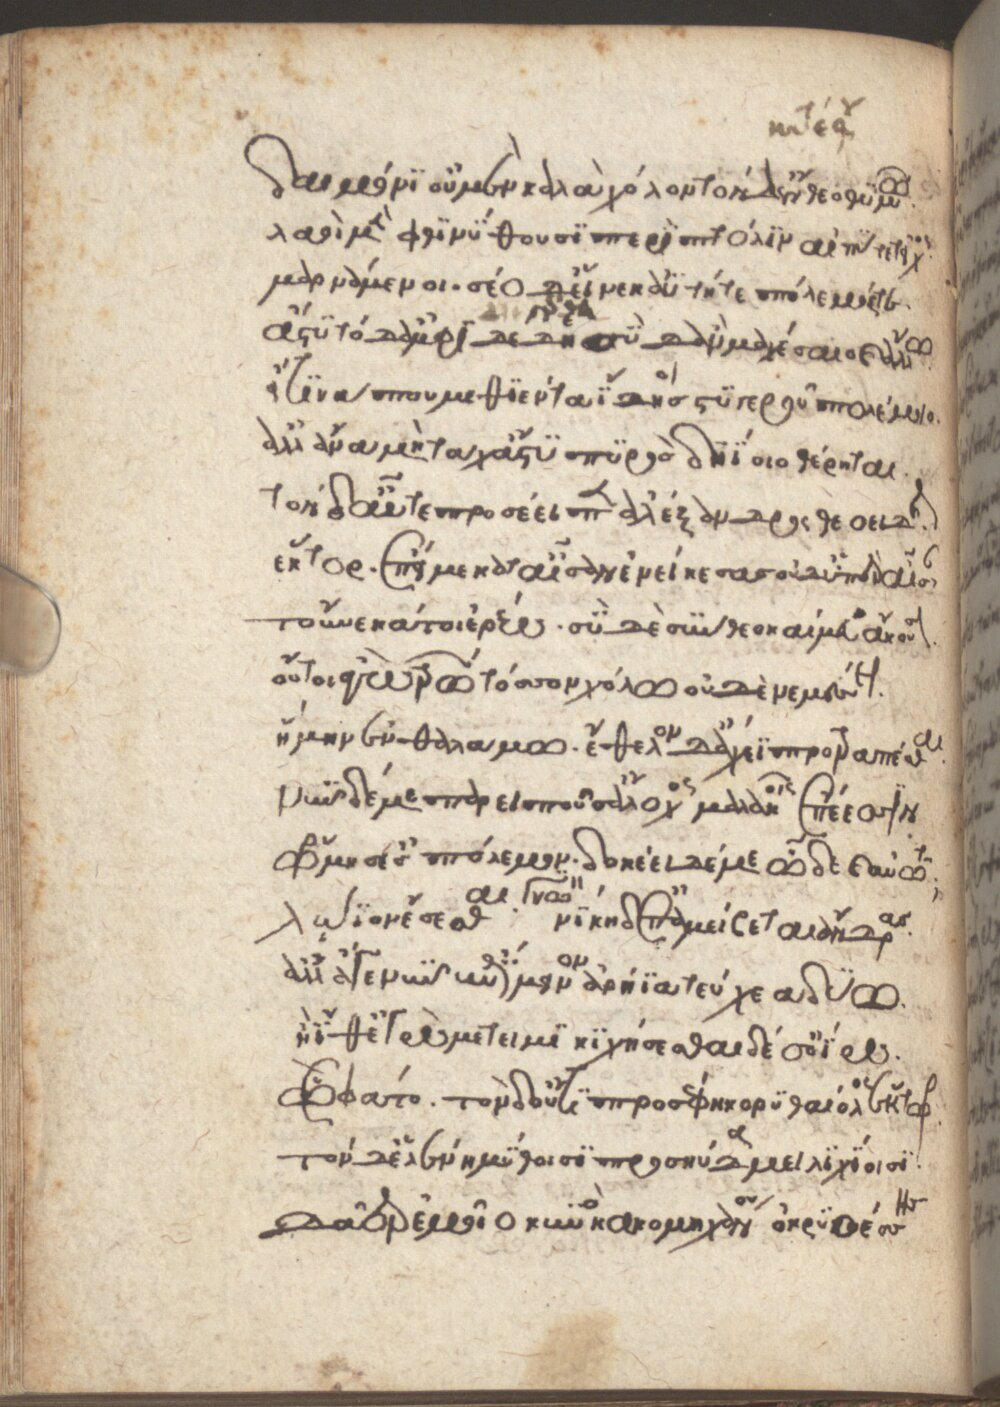 δαιμόνι οὐ μὲν καλὰ χόλον τόνδ ἔνθεο θυμῷ.
λαοὶ μὲν φθινύθουσι περὶ πτόλιν αἰπύ τε τεῖχος
μαρνάμενοι. σέο δ εἵνεκ ἀϋτή τε πτόλεμός τε.
ἄστυ τόδ ἀμφιδέδηε σὺ δ ἂν μαχέσαιο καὶ ἄλλω.
ὅν τινα που μεθϊέντα ἴδοις στυγεροῦ πολέμοιο.
ἀλλ ἄνα μὴ τάχα ἄστυ πυρὸς δηΐοιο θέρηται.
τὸν δ αὖτε προσέειπεν ἀλέξανδρος θεοειδής.
ἕκτορ. ἐπεί με κατ αἶσαν ἐνείκεσας οὐδ ὑπὲρ αἶσαν
τοὔνεκά τοι ἐρέω. σὺ δὲ σύνθεο καί μευ ἄκουσον.
οὔτοι ἐγὼ τρώων τόσσον χόλω οὐδὲ νεμέσση.
ἥμην ἐν θαλάμω. ἔθελον δ ἄχεϊ προτραπέσθαι.
νῦν δέ με παρειποῦσ ἄλοχος μαλακοῖς ἐπέεσσϊν
ὥρμησ ἐς πόλεμον. δοκέει δέ με ὧδε καὶ αὐτῶ.
λώϊον ἔσσεσθαι. νίκη δ ἐπαμείβεται ἄνδρας.
ἀλλ ἄγε νῦν ἐπίμεινον ἀρήϊα τεύχεα δύω.
ἢ ἴθ ἐγὼ δὲ μέτειμι κϊχήσεσθαι δέ σ ὀΐω.
ὣς φάτο. τὸν δ οὔτϊ προσέφη κορυθαίολος ἕκτωρ.
τὸν δ ἑλένη μύθοισϊ προσηύδα μειλιχίοισϊ.
δᾶερ ἐμεῖο κυνὸς κακομηχάνου ὀκρυοέσσης